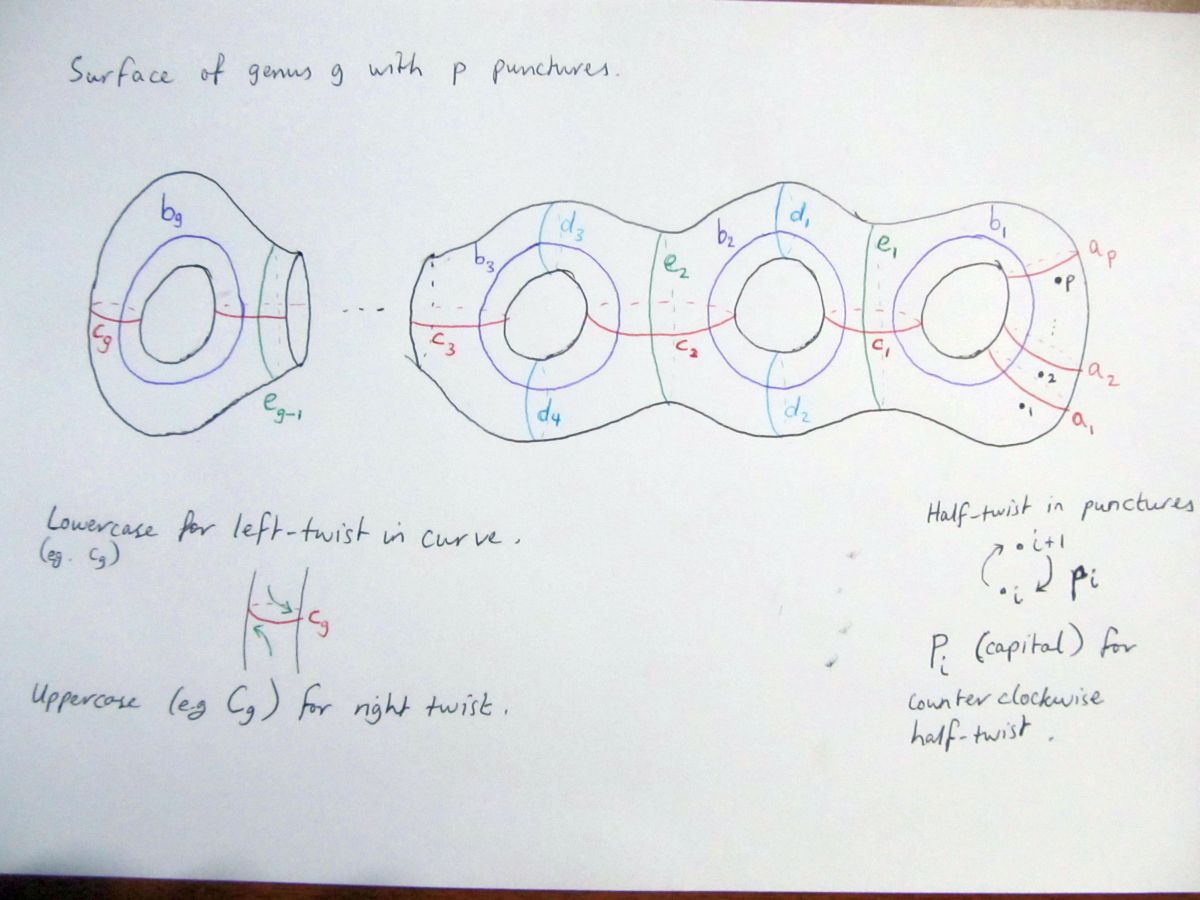 Surface of genus g with p punctures.
bg
d3
d1
b1
b3
e2
b2
e1
ap
•p
cg
c3
c2
c1
a2
•2
eg-1
d4
d2
•1
a1
Lowercase for left-twist in curve.
(eg. cg)
cg
Uppercase (eg Cg) for right twist.
Half-twist in punctures
•i+1
•i
pi
Pi (capital) for
counter clockwise
half-twist.